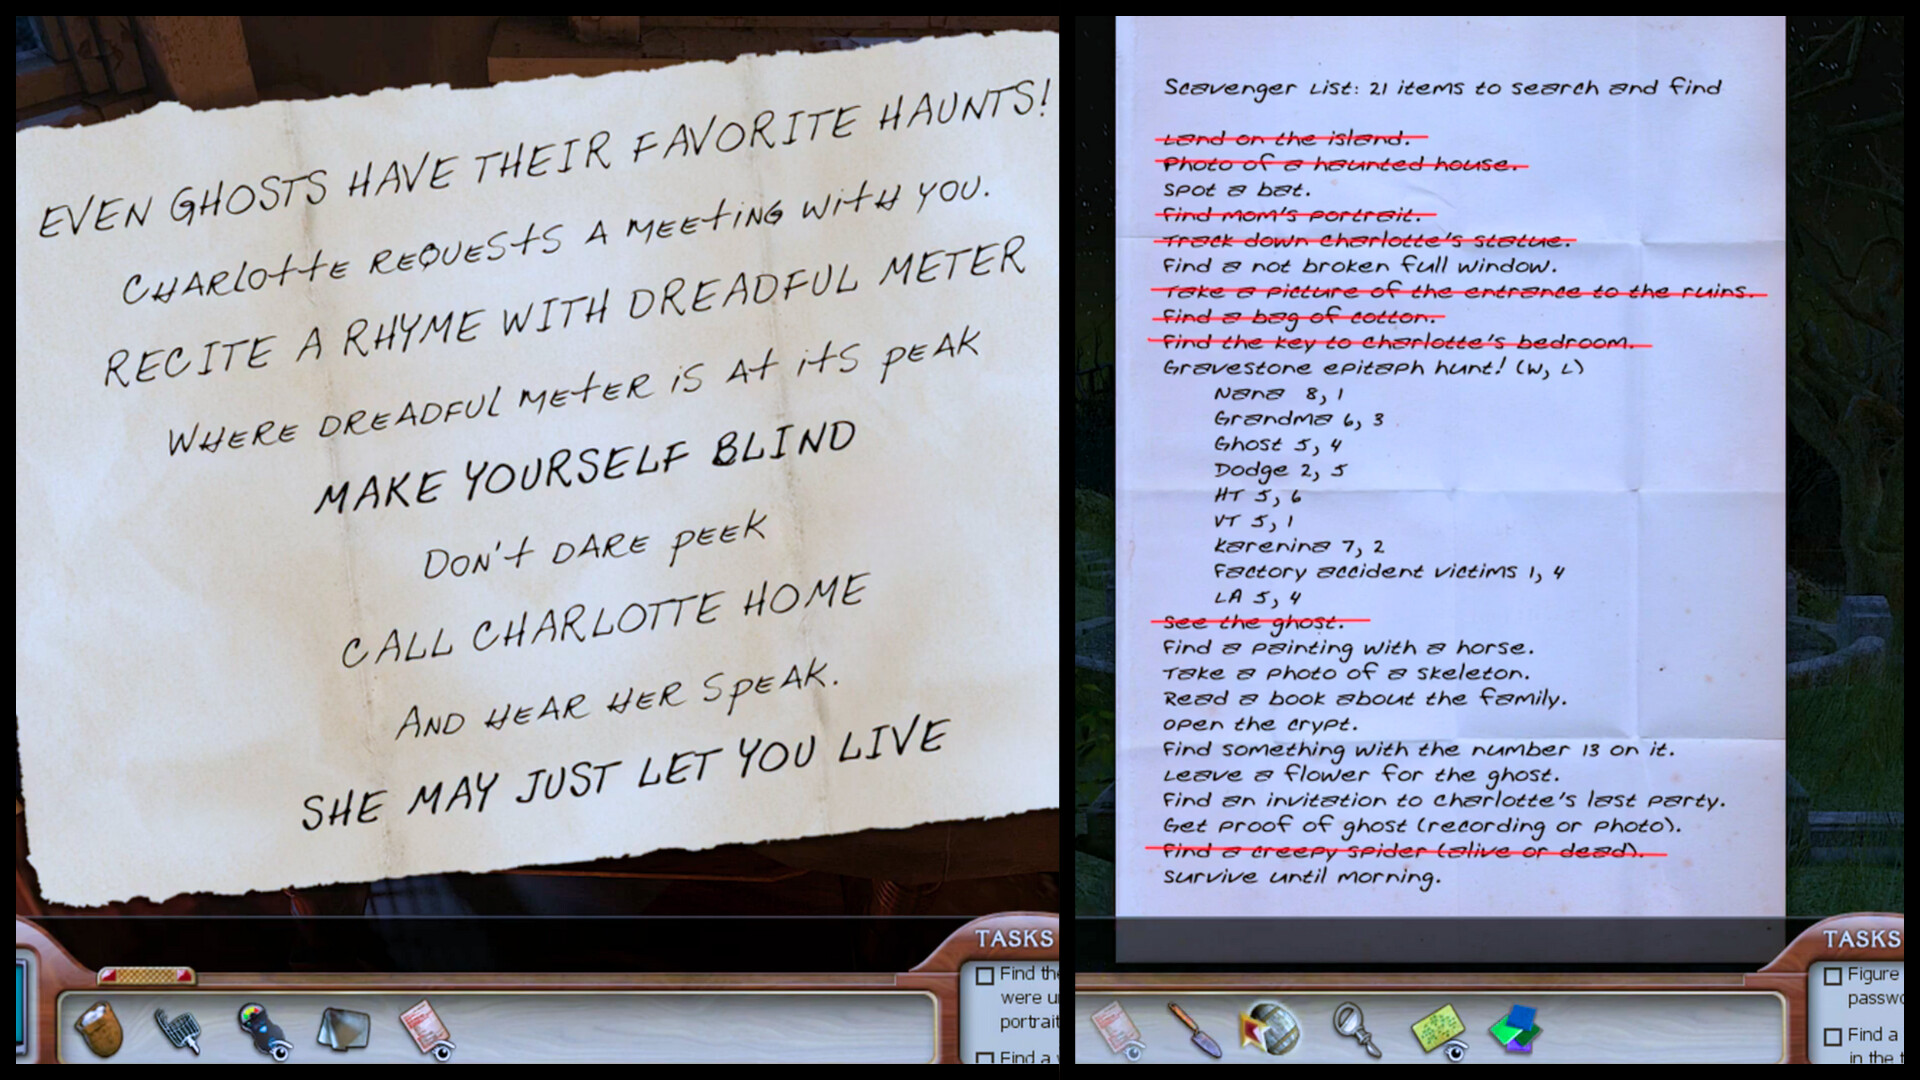 EVEN GHOSTS HAVE THEIR FAVORITE HAUNTS!
CHARLOTTE REQUESTS A MEETING WITH YOU.
RECITE A RHYME WITH DREADFUL METER
WHERE DREADFUL METER IS AT ITS PEAK
MAKE YOURSELF BLIND
DON'T DARE PEEK
CALL CHARLOTTE HOME
AND HEAR HER SPEAK.
SHE MAY JUST LET YOU LIVE
TASKS
Find the
were u
portrait
Find a
Scavenger List: 21 items to search and find
Land on the island.
Photo of a haunted house.
Spot a bat.
Find mom's portrait.
Track down Charlotte's statue.
Find a not broken full window.
Take a picture of the entrance to the ruins.
Find a bag of cotton.
Find the key to Charlotte's bedroom.
Gravestone epitaph hunt! (W, L)
Nana 8, 1
Grandma 6, 3
Ghost 5, 4
Dodge 2, 5
HT 5, 6
VT 5, 1
Karenina 7, 2
Factory accident victims 1, 4
LA 5, 4
See the ghost.
Find a painting with a horse.
Take a photo of a skeleton.
Read a book about the family.
Open the crypt.
Find something with the number 13 on it.
Leave a flower for the ghost.
Find an invitation to Charlotte's last party.
Get proof of ghost (recording or photo).
Find a creepy spider (alive or dead).
Survive until morning.
TASKS
Figure
passwo
Find a
in the t